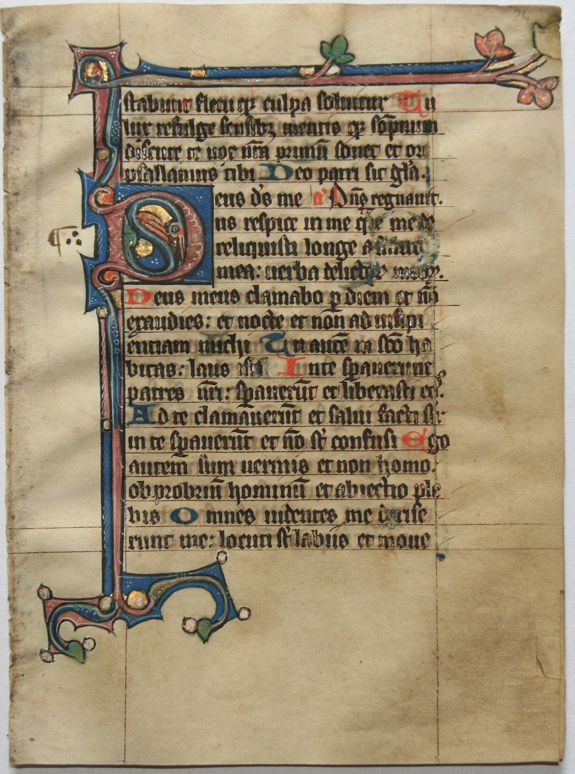 stabunt fletuque culpa soluitur Tu
lux refulge sensibz mentis que sopnum
discute te nox nra primum sonet et ore
psallamus tibi Deo patri sit gla.
Deus ds me a Dns regnauit.
us respice in me quare me de
reliquisti longe a salute
mea: uerba delictor meor.
Deus meus clamabo p diem et no
exaudies: et nocte et non ad insipi
entiam michi Tu aute in sco ha
bitas: laus isrl In te sperauerunt
patres nri: sperauerut et liberasti eos
Ad te clamauerut et salui facti st
in te sperauerut et no st confusi Ego
autem sum uermis et non homo.
obprobrium hominum et abiectio ple
bis Omnes uidentes me derise
runt me: locuti st labiis et moue